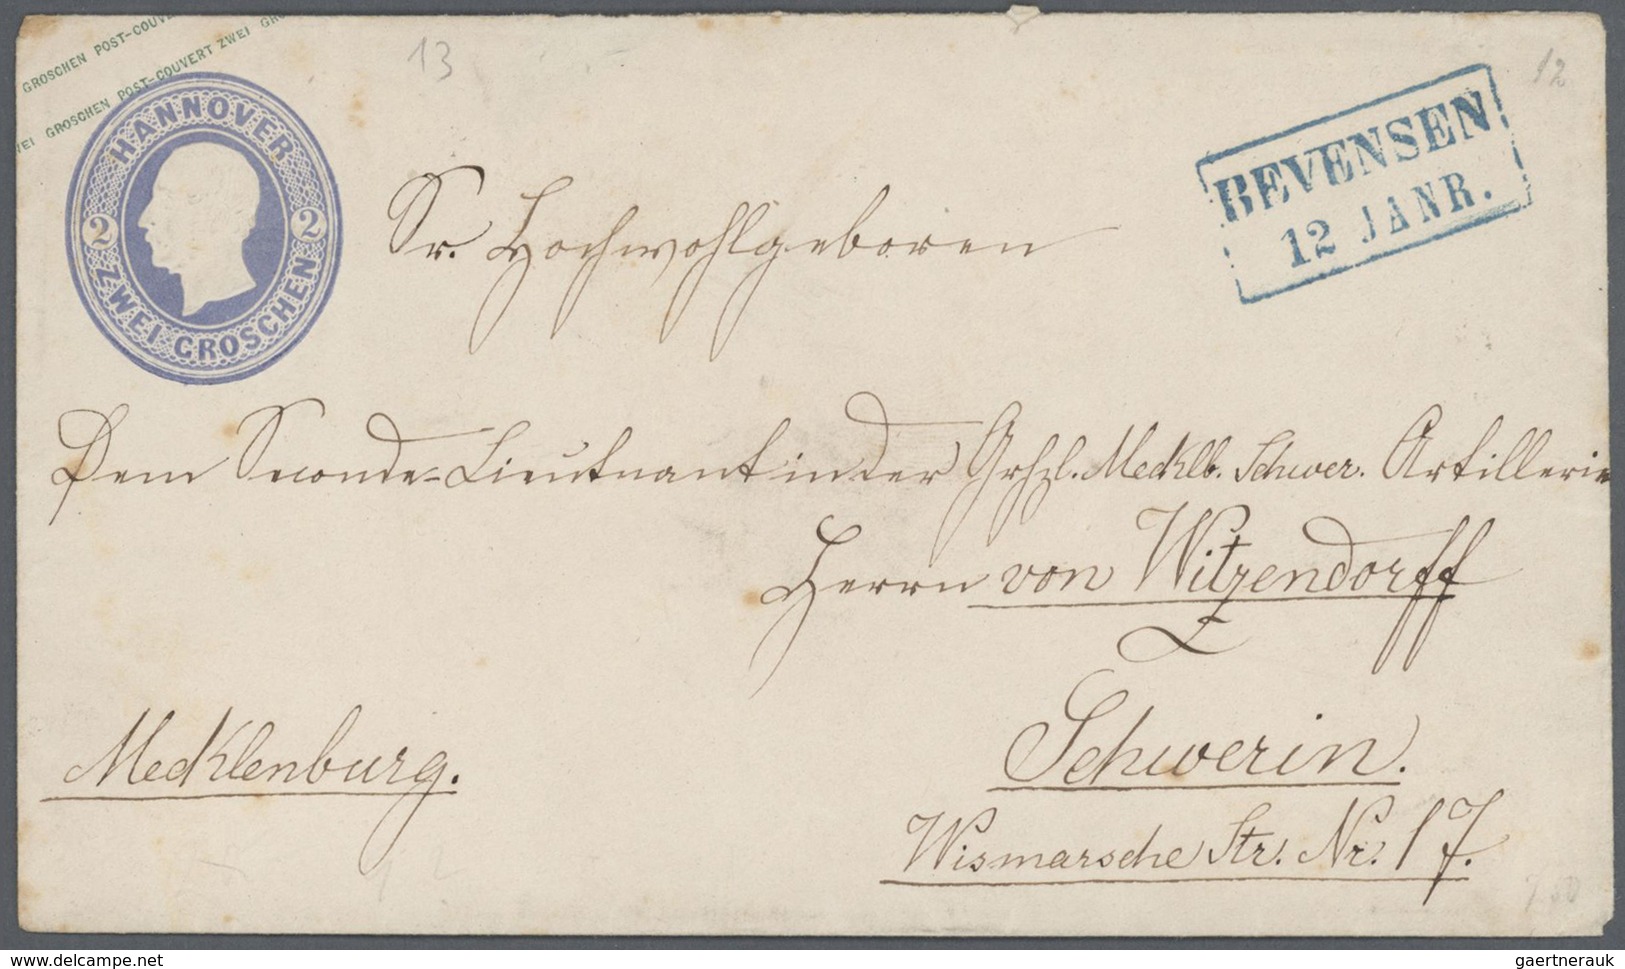 GROSCHEN POST-COUVE
GROSCHEN POST-COUVERT ZWEI GRO
HANNOVER
2 2
ZWEI GROSCHEN
13
12
BEVENSEN
12 JANR.
Sr. Hochwohlgeboren
Dem Seconde-Lieutnant in der Grhzl. Mecklb. Schwer. Artillerie
Herrn von Witzendorff
Schwerin.
Mecklenburg.
Wismarsche Str. Nr. 17.
www.delcampe.net
gaertnerauk